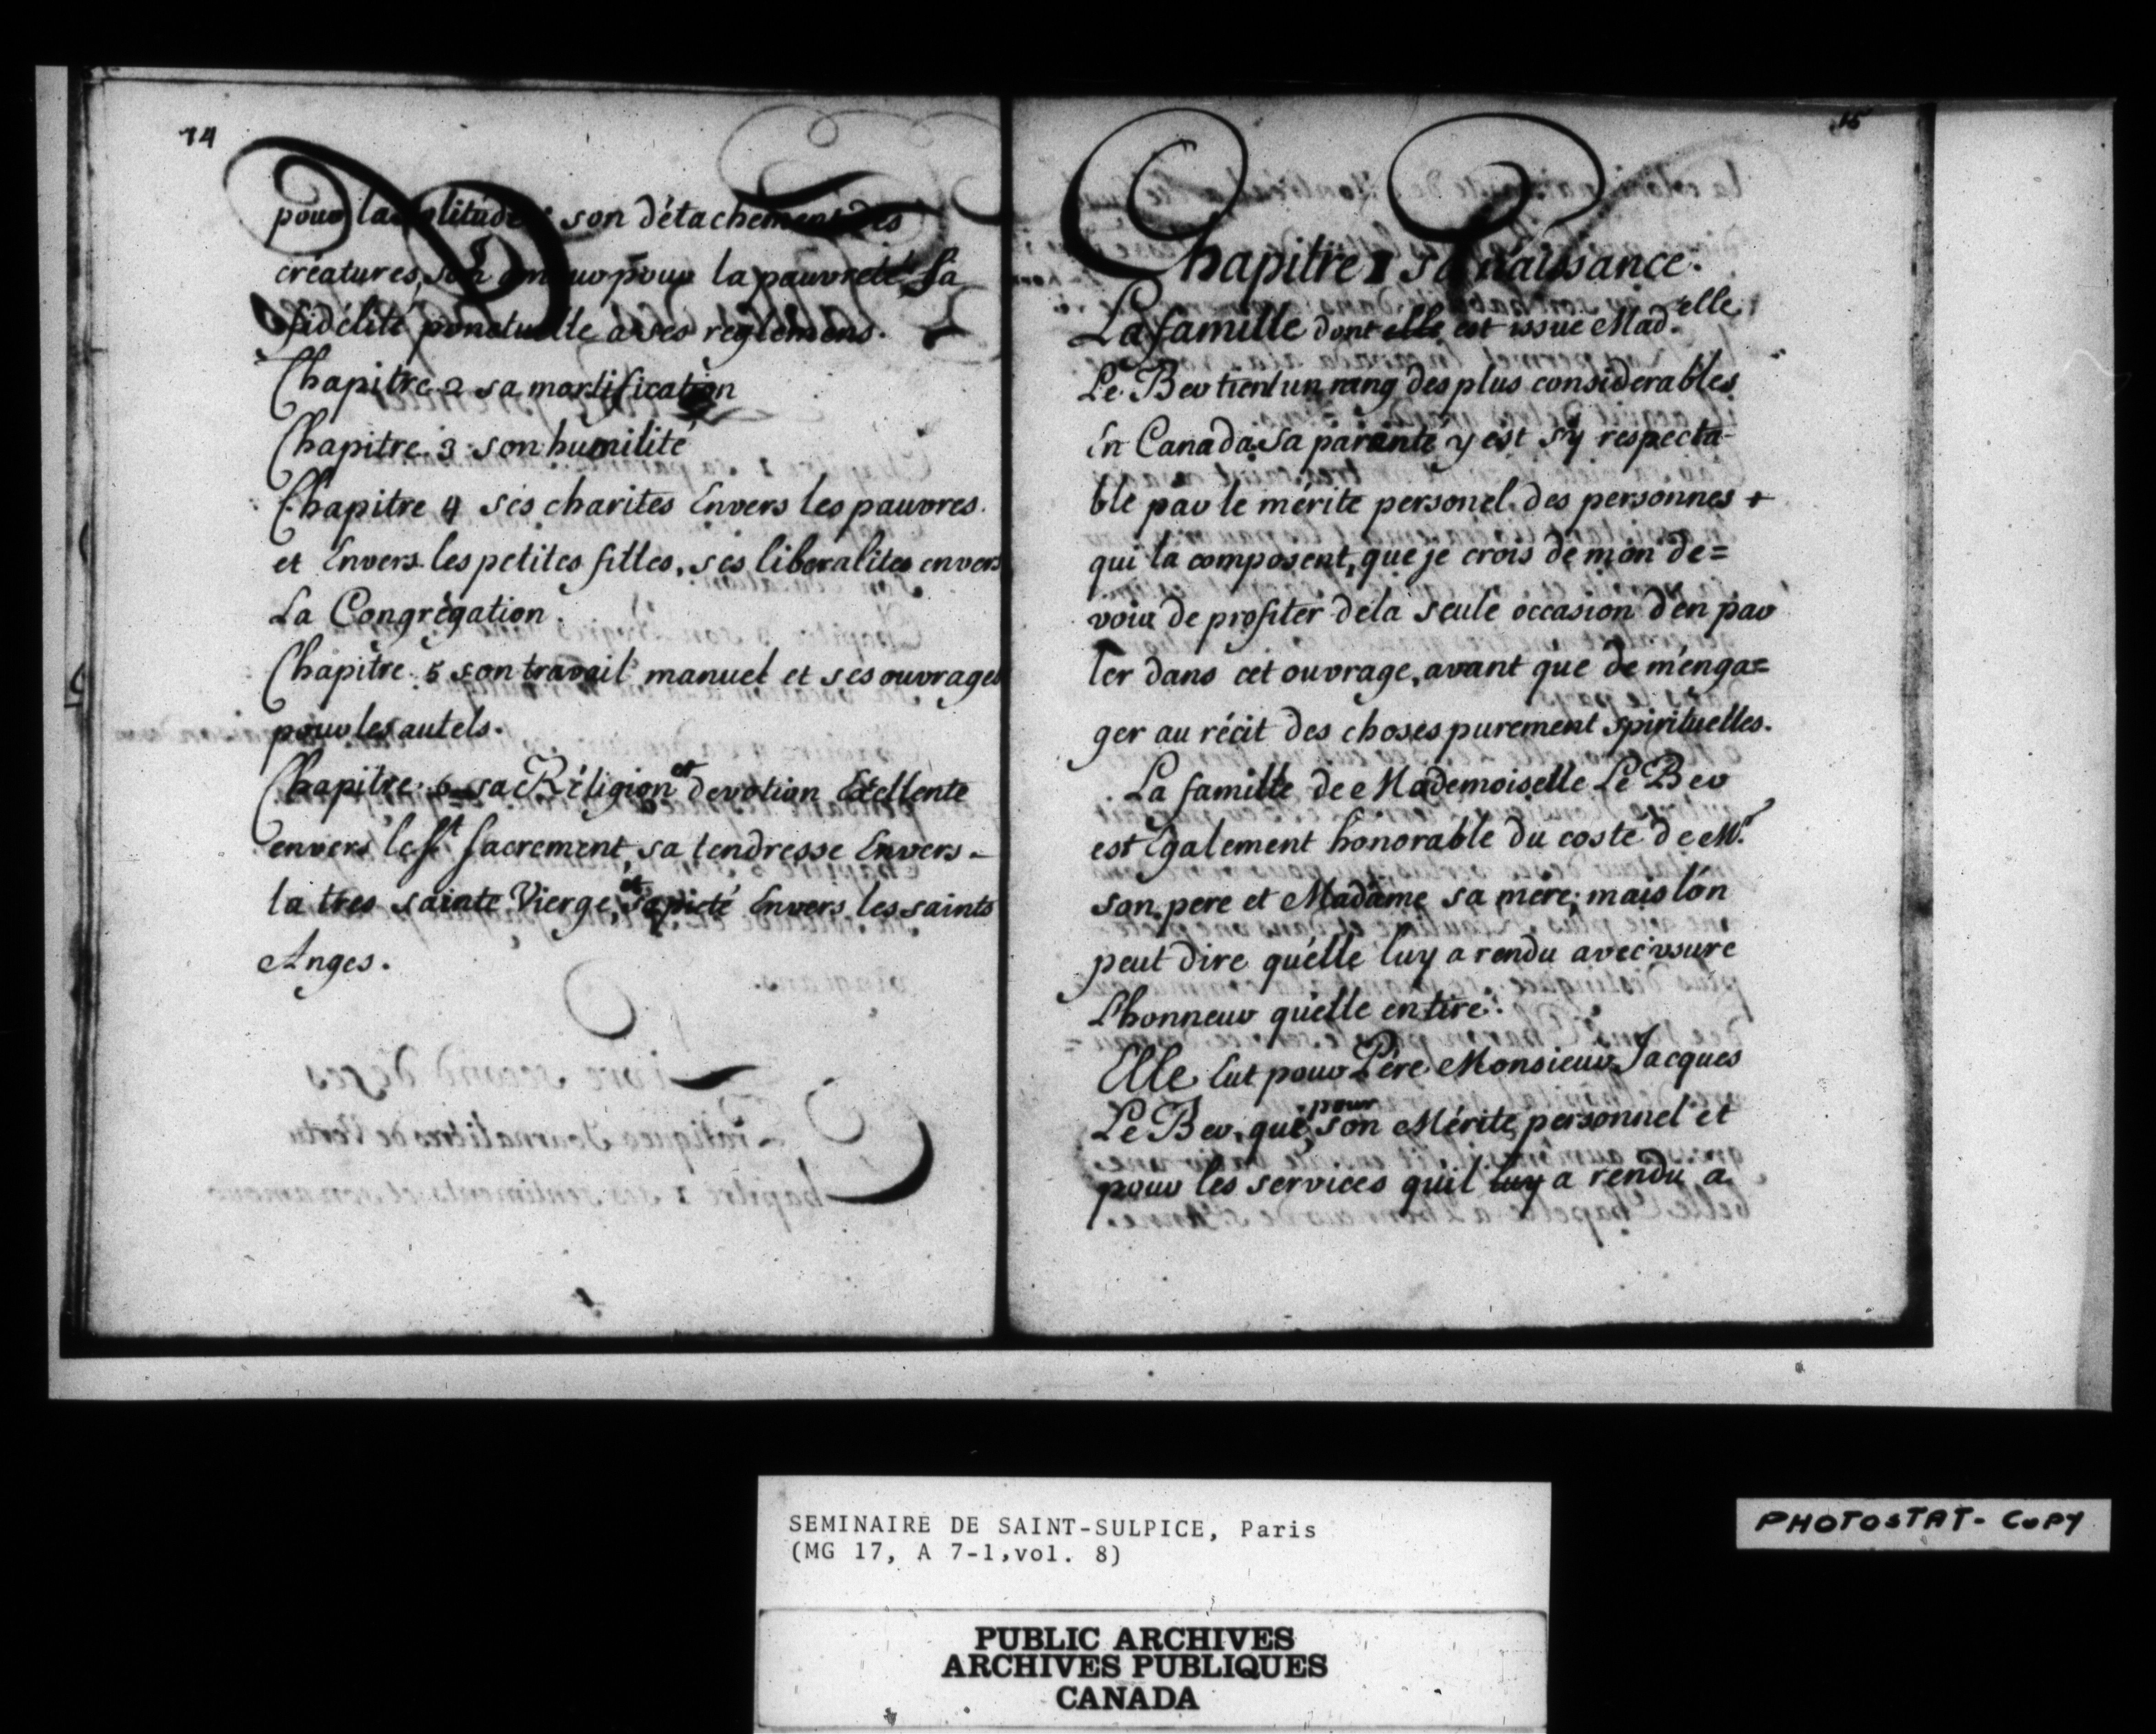 14
pour la solitude son détachement des
créatures, son amour pour la pauvreté sa
fidélité ponctuelle a ses reglemens.
Chapitre 2 sa mortification
Chapitre 3 son humilité
Chapitre 4 ses charités Envers les pauvres.
et Envers les petites filles, ses liberalites envers
La Congrégation.
Chapitre 5 son travail manuel et ses ouvrages
pour les autels.
Chapitre 6 sa Réligion et devotion Exellente
envers le St Sacrement, sa tendresse Envers
la tres sainte Vierge, et sa pieté Envers les saints
Anges.
15
Chapitre 1 sa naissance.
La famille dont elle est issue Mad.elle
Le Ber tient un rang des plus considerables
En Canada. Sa paranté y est sy respecta-
ble par le mérite personel des personnes +
qui la composent, que je crois de mon de=
voir de profiter de la seule occasion d'en par
ler dans cet ouvrage, avant que de m'enga=
ger au récit des choses purement spirituelles.
La famille de Mademoiselle Le Ber
est Egalement honorable du costé de Mr.
son pere et Madame sa mere; mais l'on
peut dire qu'elle luy a rendu avec usure
L'honneur qu'elle en tire.
Elle Eut pour Pére Monsieur Jacques
Le Ber, que pour son Mérite personnel et
pour les services quil luy a rendu a
SEMINAIRE DE SAINT-SULPICE, Paris
(MG 17, A 7-1, vol. 8)
PUBLIC ARCHIVES
ARCHIVES PUBLIQUES
CANADA
PHOTOSTAT-COPY